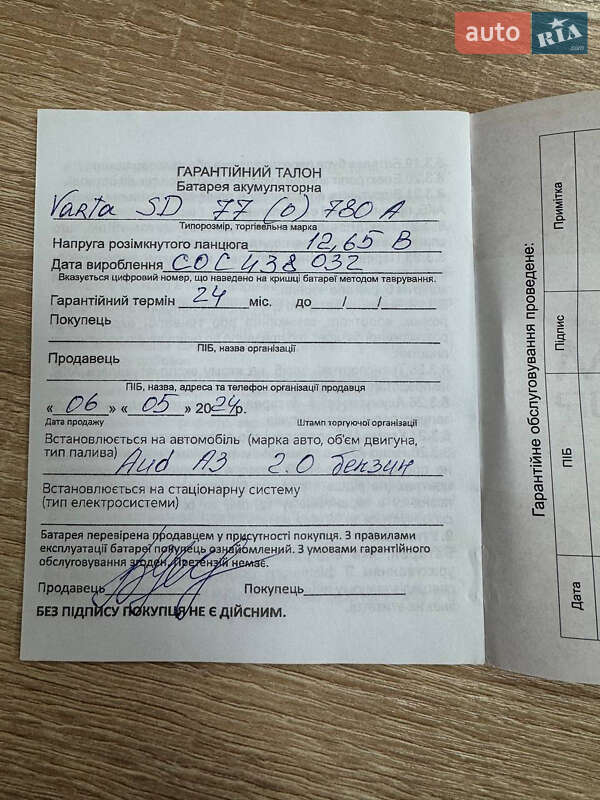 auto RIA.com
ГАРАНТІЙНИЙ ТАЛОН
Батарея акумуляторна
Varta SD 77 (0) 780 A
Типорозмір, торгівельна марка
Напруга розімкнутого ланцюга 12,65 В
Дата вироблення COC438 032
Вказується цифровий номер, що наведено на кришці батареї методом таврування.
Гарантійний термін 24 міс. до / /
Покупець
ПІБ, назва організації
Продавець
ПІБ, назва, адреса та телефон організації продавця
« 06 » « 05 » 2024р.
Дата продажу Штамп торгуючої організації
Встановлюється на автомобіль (марка авто, об'єм двигуна,
тип палива) Aud A3 2.0 бензин
Встановлюється на стаціонарну систему
(тип електросистеми)
Батарея перевірена продавцем у присутності покупця. З правилами
експлуатації батареї покупець ознайомлений. З умовами гарантійного
обслуговування згоден. Претензій немає.
Продавець Покупець
БЕЗ ПІДПИСУ ПОКУПЦЯ НЕ Є ДІЙСНИМ.
Гарантійне обслуговування проведене:
Дата ПІБ Підпис Примітка